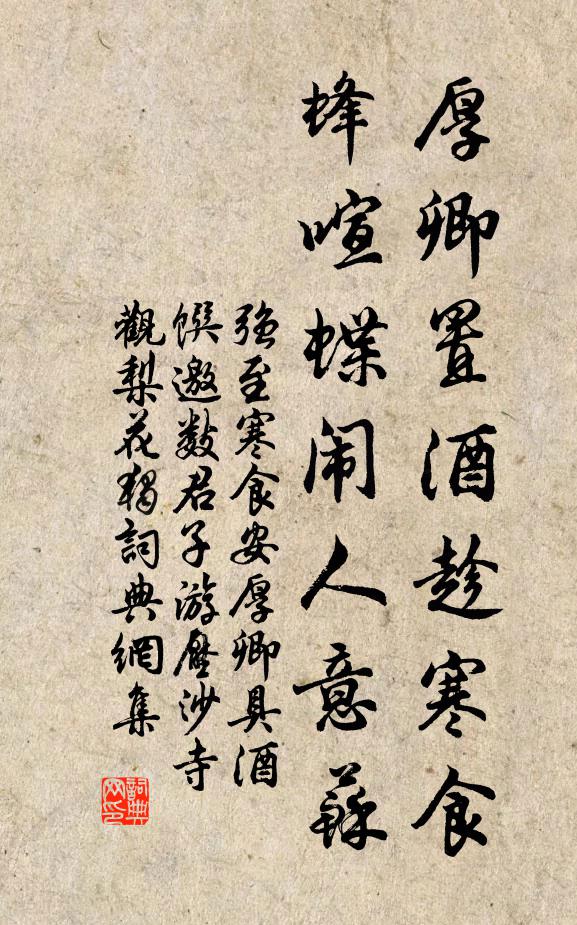 厚卿置酒趁寒食
蜂喧蝶闹人意蘇
强至寒食安厚卿具酒
饌邀数君子游壓沙寺
觀梨花獨詞典網集
詞典
网印